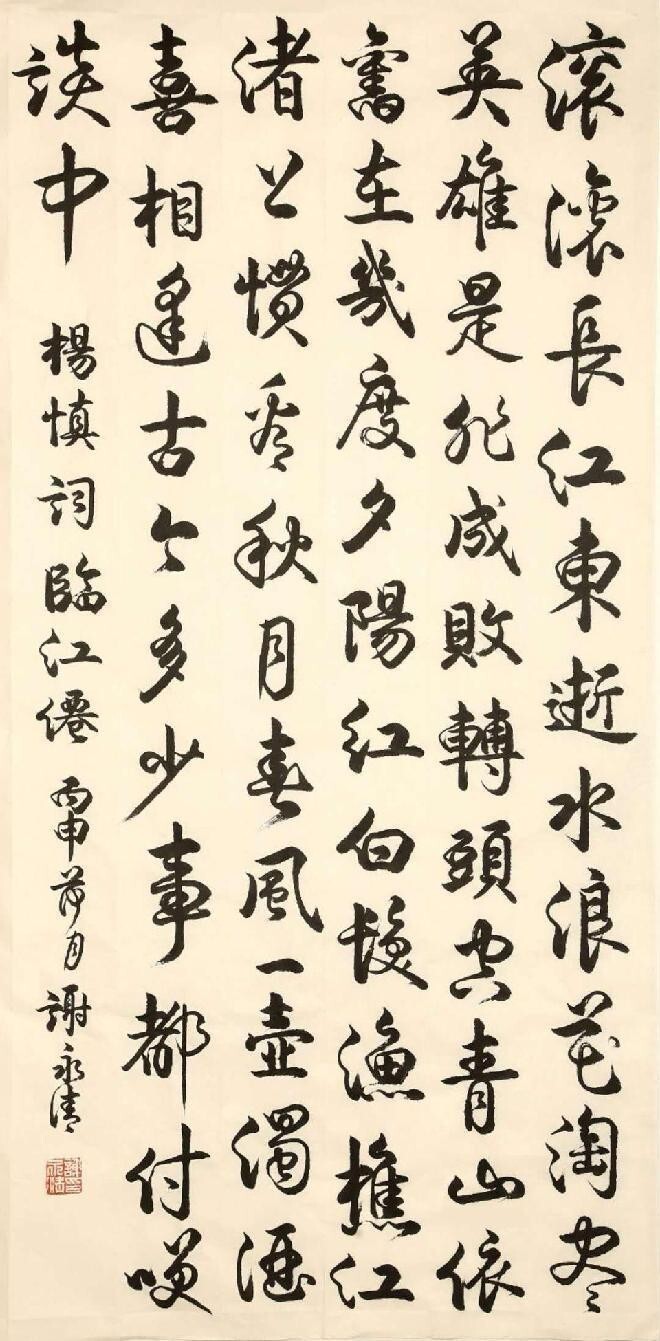 滚滚長江東逝水浪花淘尽
英雄是非成敗轉頭空青山依
舊在幾度夕陽紅白髮漁樵江
渚上慣看秋月春風一壺濁酒
喜相逢古今多少事都付唉
談中
楊慎詞臨江僊 丙申荷月 謝永清